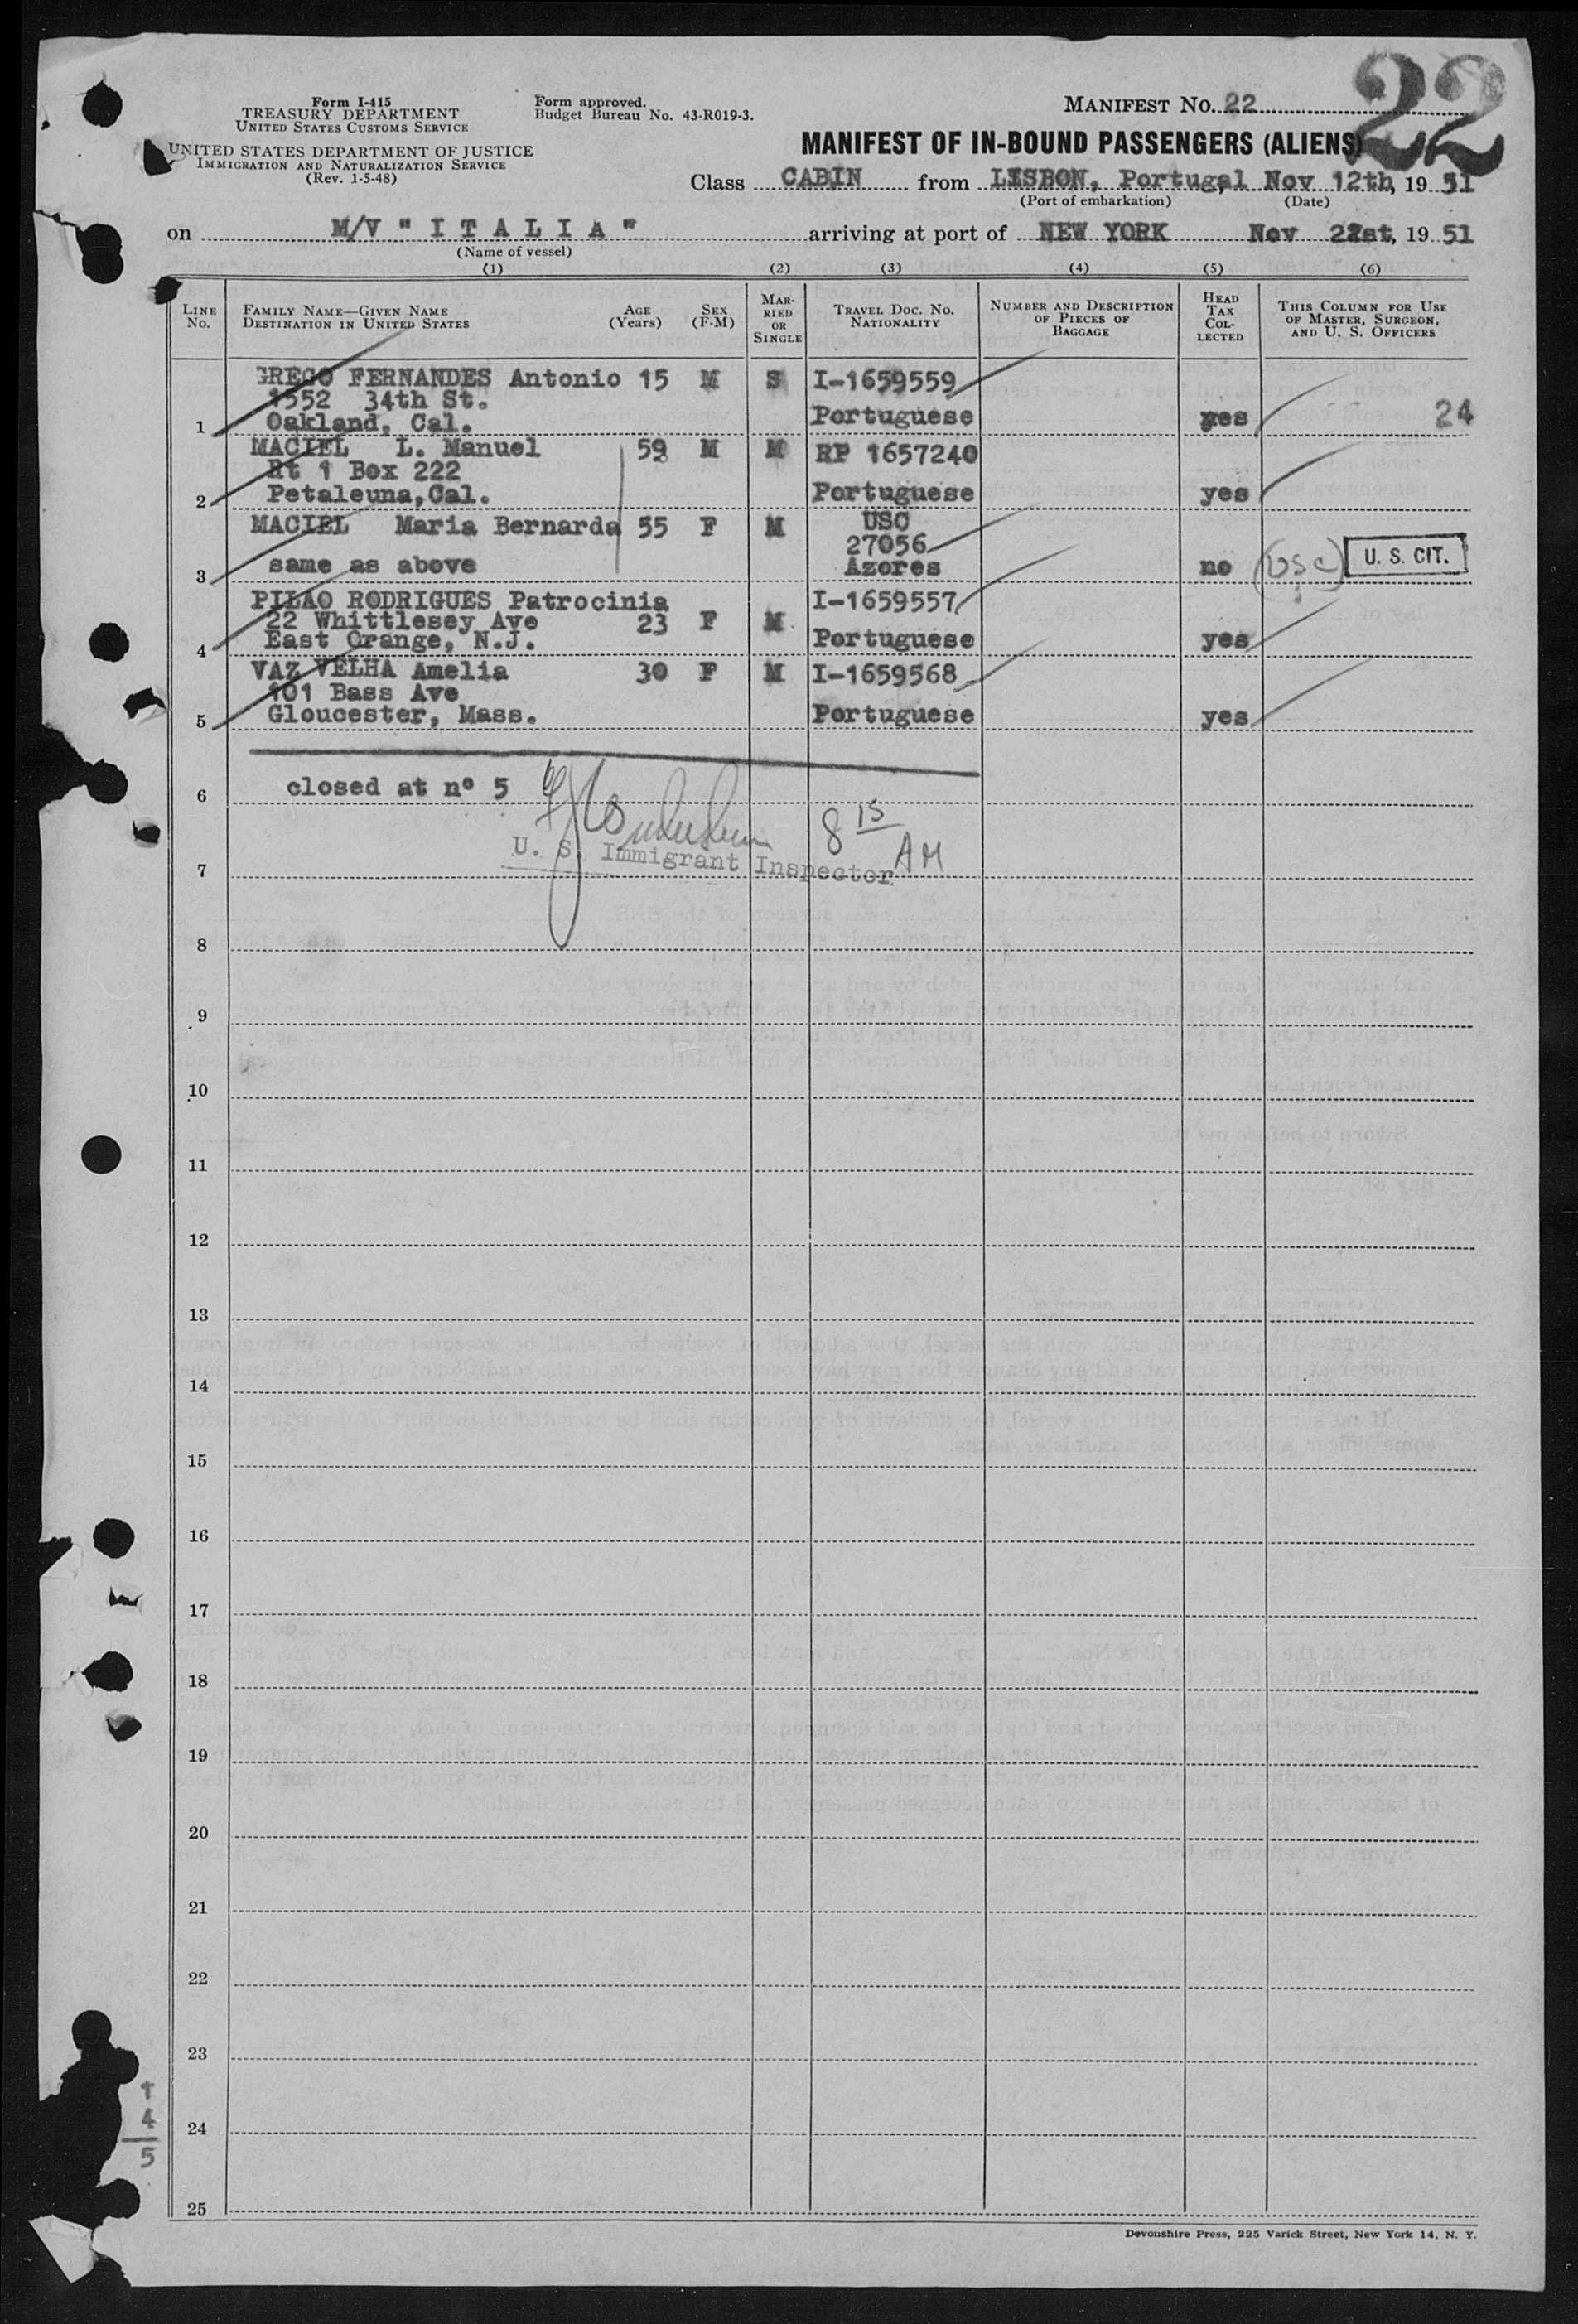 Form I-415
TREASURY DEPARTMENT
UNITED STATES CUSTOMS SERVICE
UNITED STATES DEPARTMENT OF JUSTICE
IMMIGRATION AND NATURALIZATION SERVICE
(Rev. 1-5-48)
Form approved.
Budget Bureau No. 43-R019-3.
MANIFEST NO. 22
22
MANIFEST OF IN-BOUND PASSENGERS (ALIENS)
Class CABIN from LISBON, Portugal Nov 12th, 19 51
(Port of embarkation) (Date)
on M/V " I T A L I A " arriving at port of NEW YORK Nov 22st, 19 51
(Name of vessel)
(1) (2) (3) (4) (5) (6)
LINE No. FAMILY NAME—GIVEN NAME DESTINATION IN UNITED STATES AGE (Years) SEX (F-M) MARRIED OR SINGLE TRAVEL DOC. NO. NATIONALITY NUMBER AND DESCRIPTION OF PIECES OF BAGGAGE HEAD TAX COLLECTED THIS COLUMN FOR USE OF MASTER, SURGEON, AND U. S. OFFICERS
GREGO FERNANDES Antonio 15 M S I-1659559
1552 34th St. Portuguese yes 24
1 Oakland, Cal.
MACIEL L. Manuel 59 M M RP 1657240
Rt 1 Box 222
2 Petaleuna, Cal. Portuguese yes
MACIEL Maria Bernarda 55 F M USC
27056
3 same as above Azores no (USC) U. S. CIT.
PILAO RODRIGUES Patrocinia I-1659557
22 Whittlesey Ave 23 F M
4 East Orange, N.J. Portuguese yes
VAZ VELHA Amelia 30 F M I-1659568
101 Bass Ave
5 Gloucester, Mass. Portuguese yes
6 closed at nº 5
8 15 AM
7 U. S. Immigrant Inspector
8
9
10
11
12
13
14
15
16
17
18
19
20
21
22
23
24
25
1
4
5
Devonshire Press, 225 Varick Street, New York 14, N. Y.